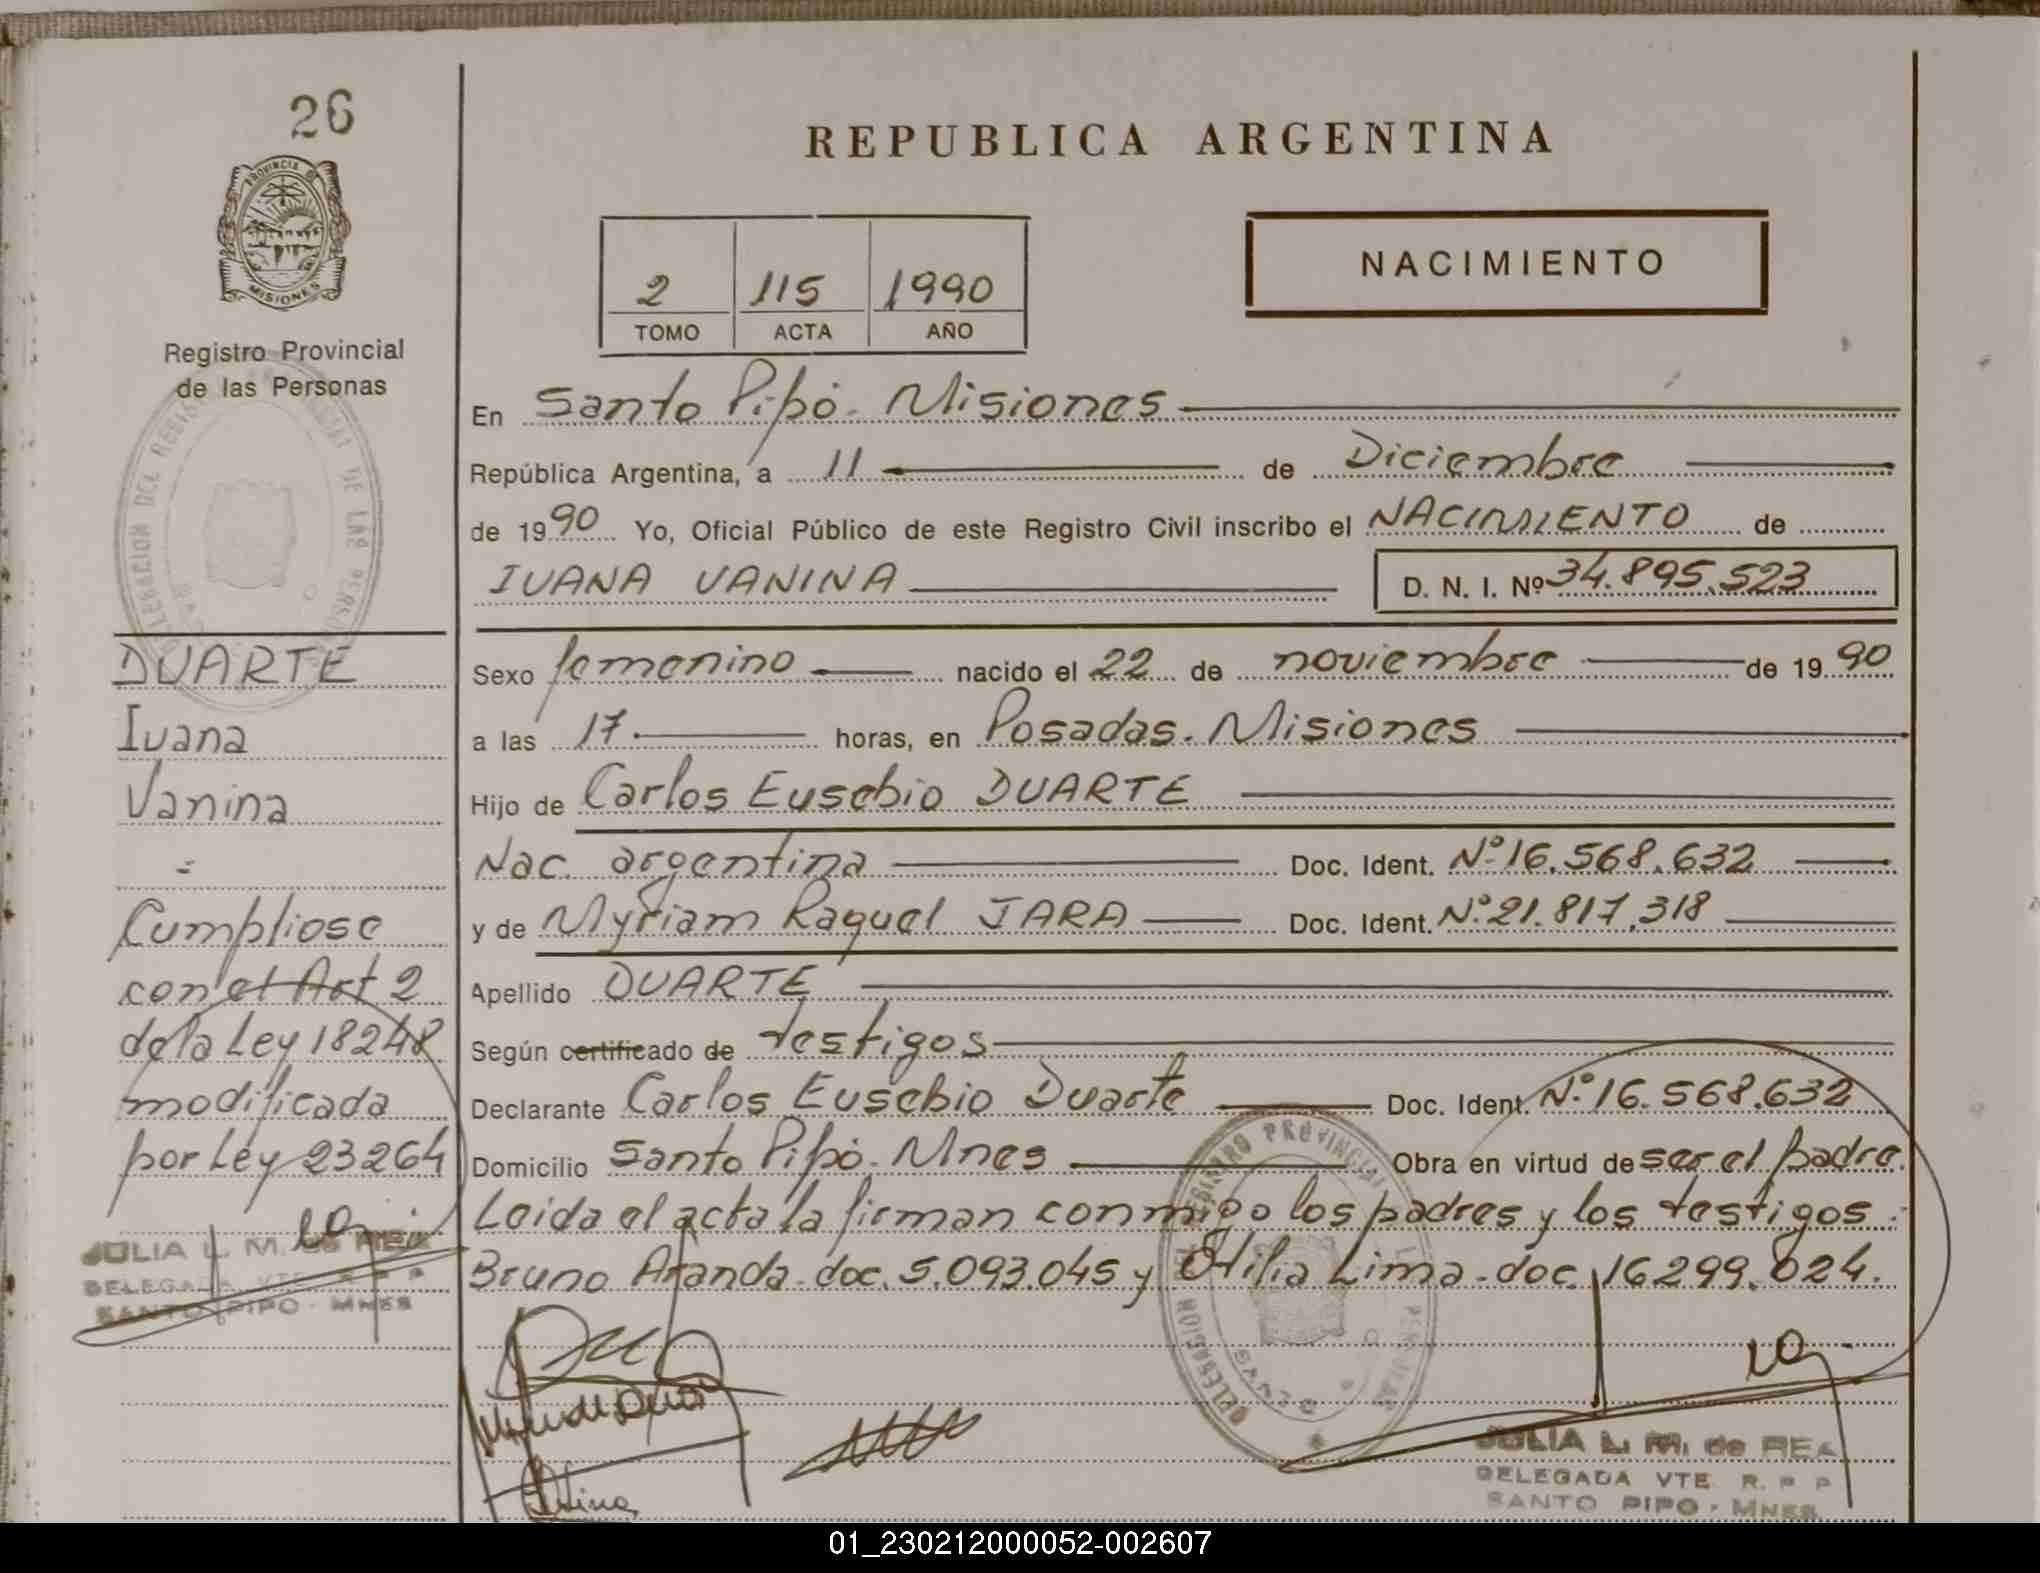 26
REPUBLICA ARGENTINA
PROVINCIA DE
MISIONES
NACIMIENTO
2 115 1990
TOMO ACTA AÑO
Registro Provincial
de las Personas
En Santo Pipó. Misiones
República Argentina, a 11 de Diciembre
de 1990 Yo, Oficial Público de este Registro Civil inscribo el NACIMIENTO de
IVANA VANINA D. N. I. Nº 34.895.523
DUARTE
Ivana
Vanina
=
Cumpliose
con el Art 2
de la Ley 18248
modificada
por Ley 23264
JULIA L. M. de REA
DELEGADA VTE. R P P
SANTO PIPO - MNES
Sexo femenino nacido el 22 de noviembre de 1990
a las 17 horas, en Posadas. Misiones
Hijo de Carlos Eusebio DUARTE
Nac. argentina Doc. Ident. Nº 16.568.632
y de Myriam Raquel JARA Doc. Ident. Nº 21.817.318
Apellido DUARTE
Según certificado de testigos
Declarante Carlos Eusebio Duarte Doc. Ident. Nº 16.568.632
Domicilio Santo Pipó. Mnes Obra en virtud de ser el padre.
Leida el acta la firman conmigo los padres y los testigos:
Bruno Aranda. doc. 5.093.045 y Otilia Lima. doc. 16.299.024.
JULIA L. M. de REA
DELEGADA VTE. R. P P
SANTO PIPO - MNES.
01_230212000052-002607